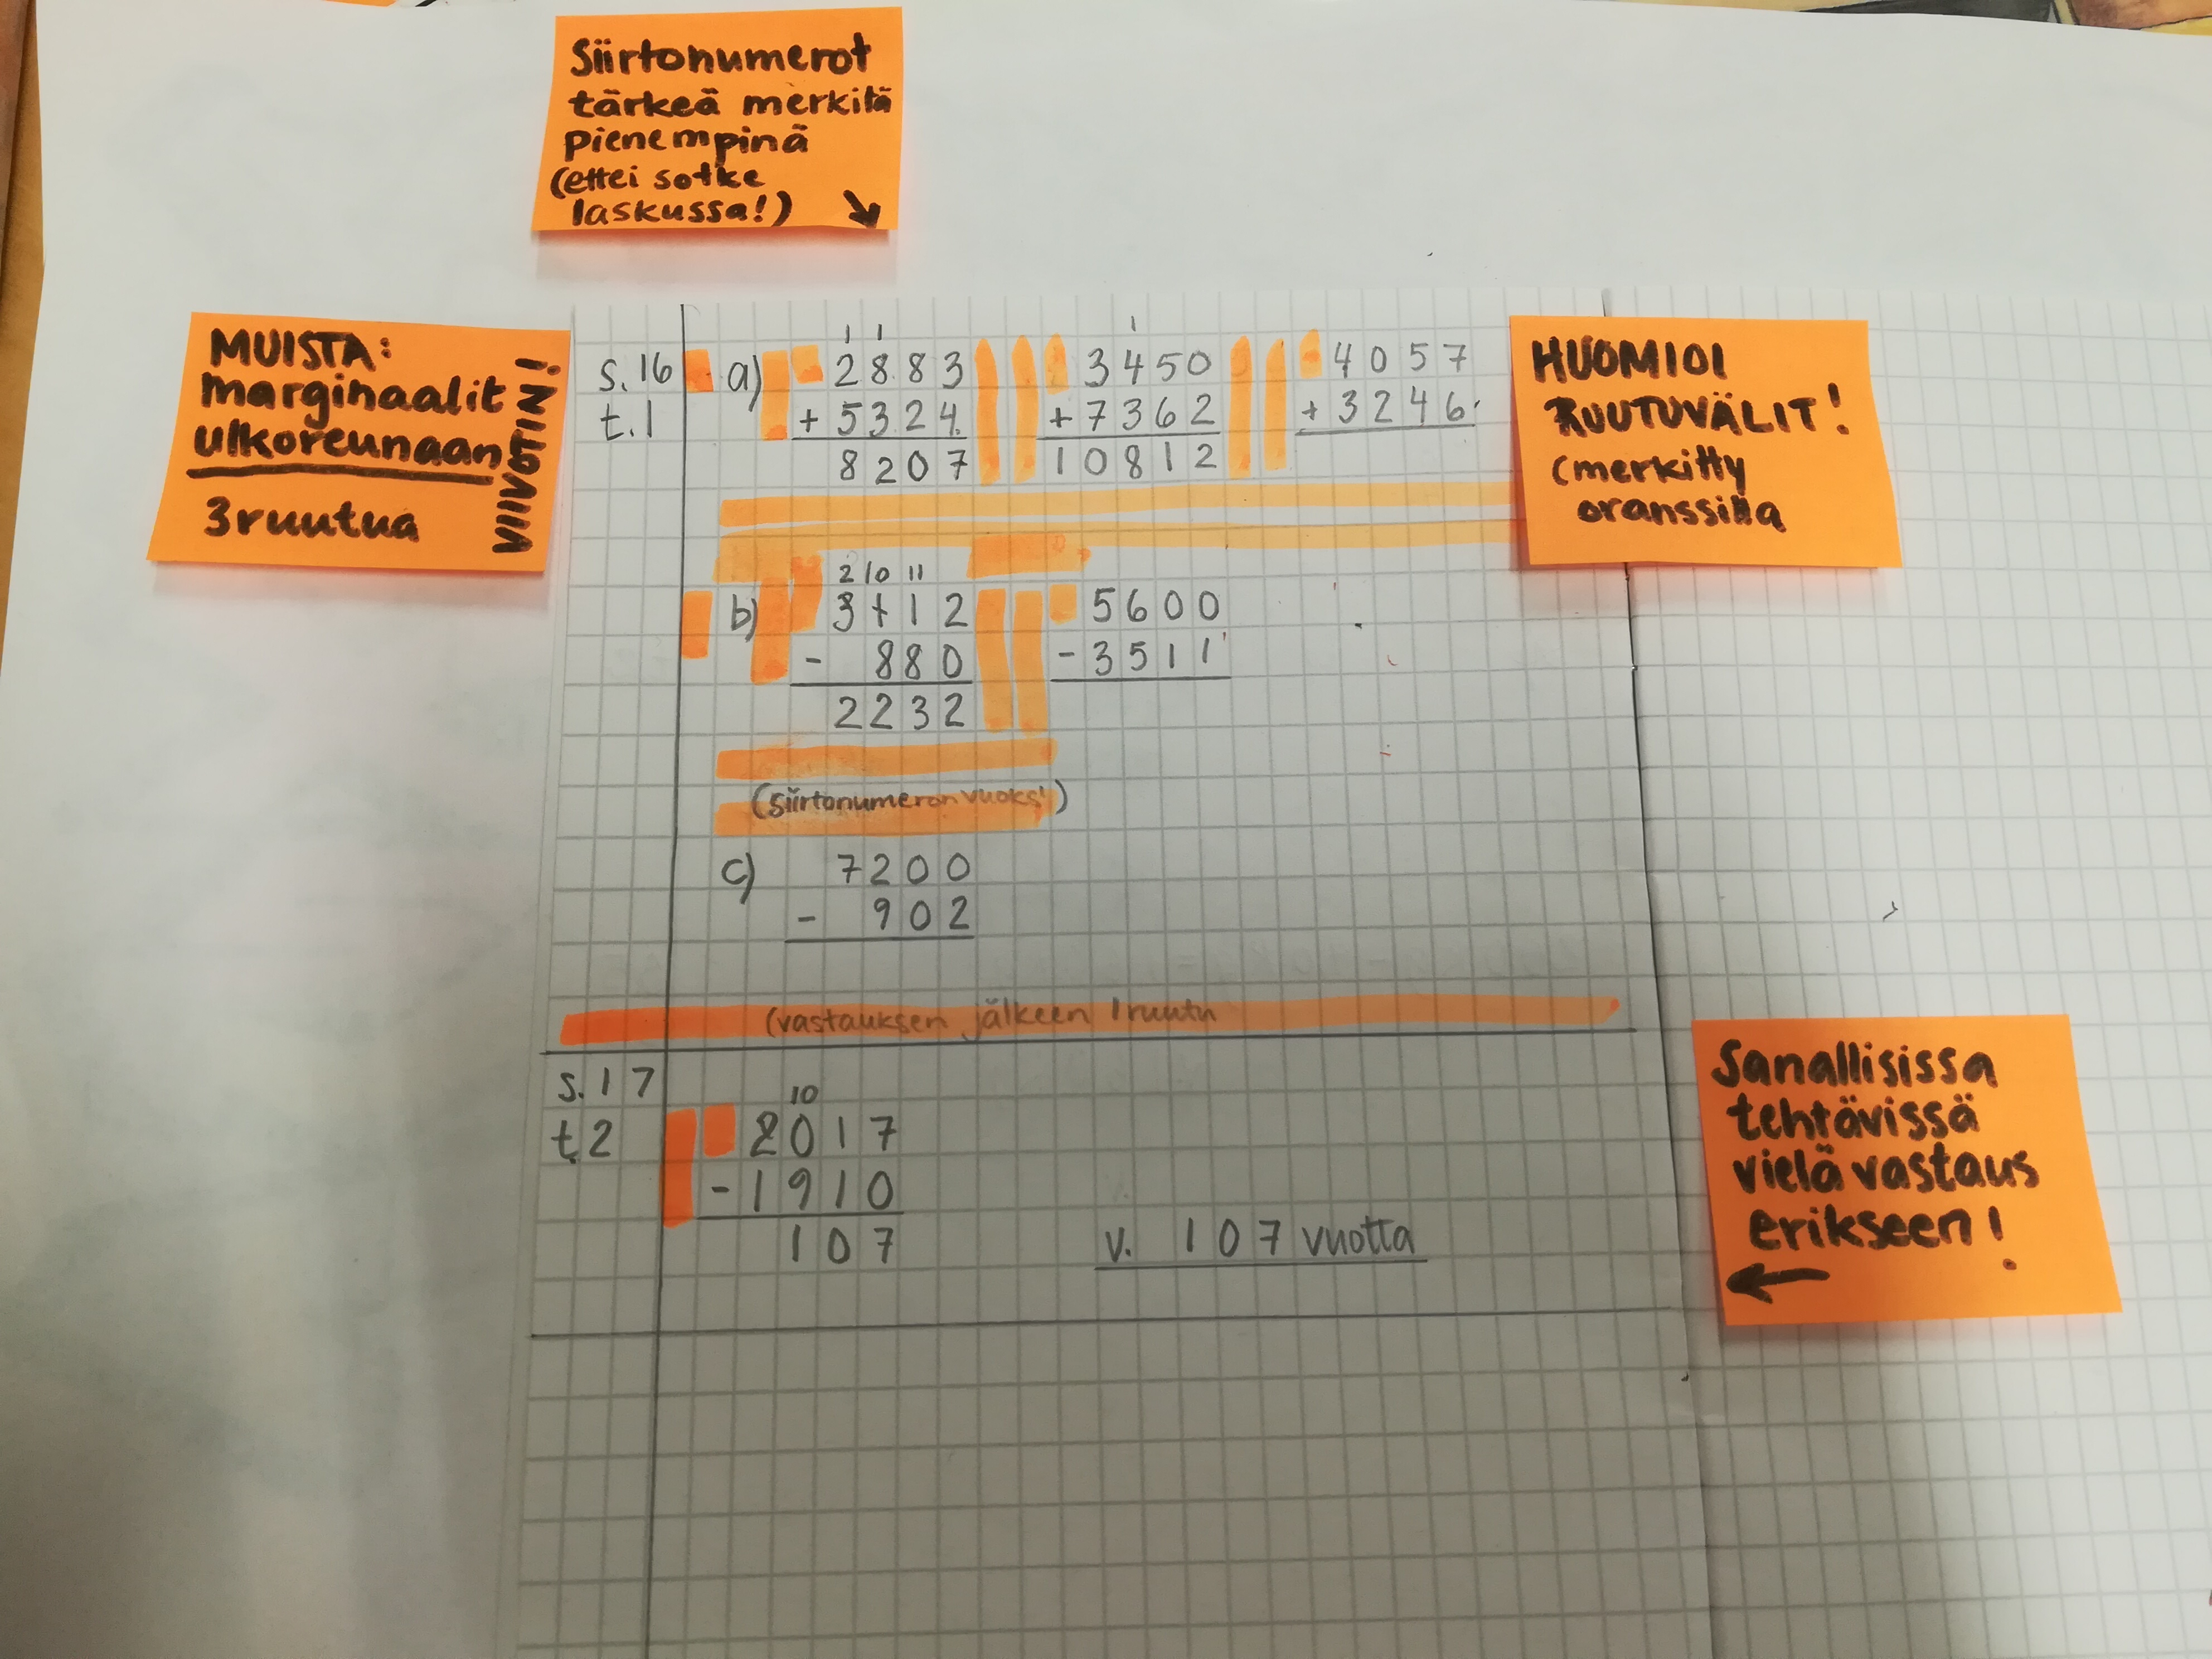 Siirtonumerot
tärkeä merkitä
pienempinä
(ettei sotke
laskussa!)
MUISTA:
marginaalit
ulkoreunaan
3 ruutua
VIIVOTIN!
HUOMIOI
RUUTUVÄLIT!
(merkitty
oranssilla
s.16
t.1
1 1
a) 2883
+ 5324
8207
1
3450
+ 7362
10812
4057
+ 3246
2 10 11
b) 3112
- 880
2232
5600
- 3511
(siirtonumeron vuoksi)
c) 7200
- 902
(vastauksen jälkeen 1 ruutu
s.17
t.2
10
2017
- 1910
107
v. 107 vuotta
Sanallisissa
tehtävissä
vielä vastaus
erikseen!